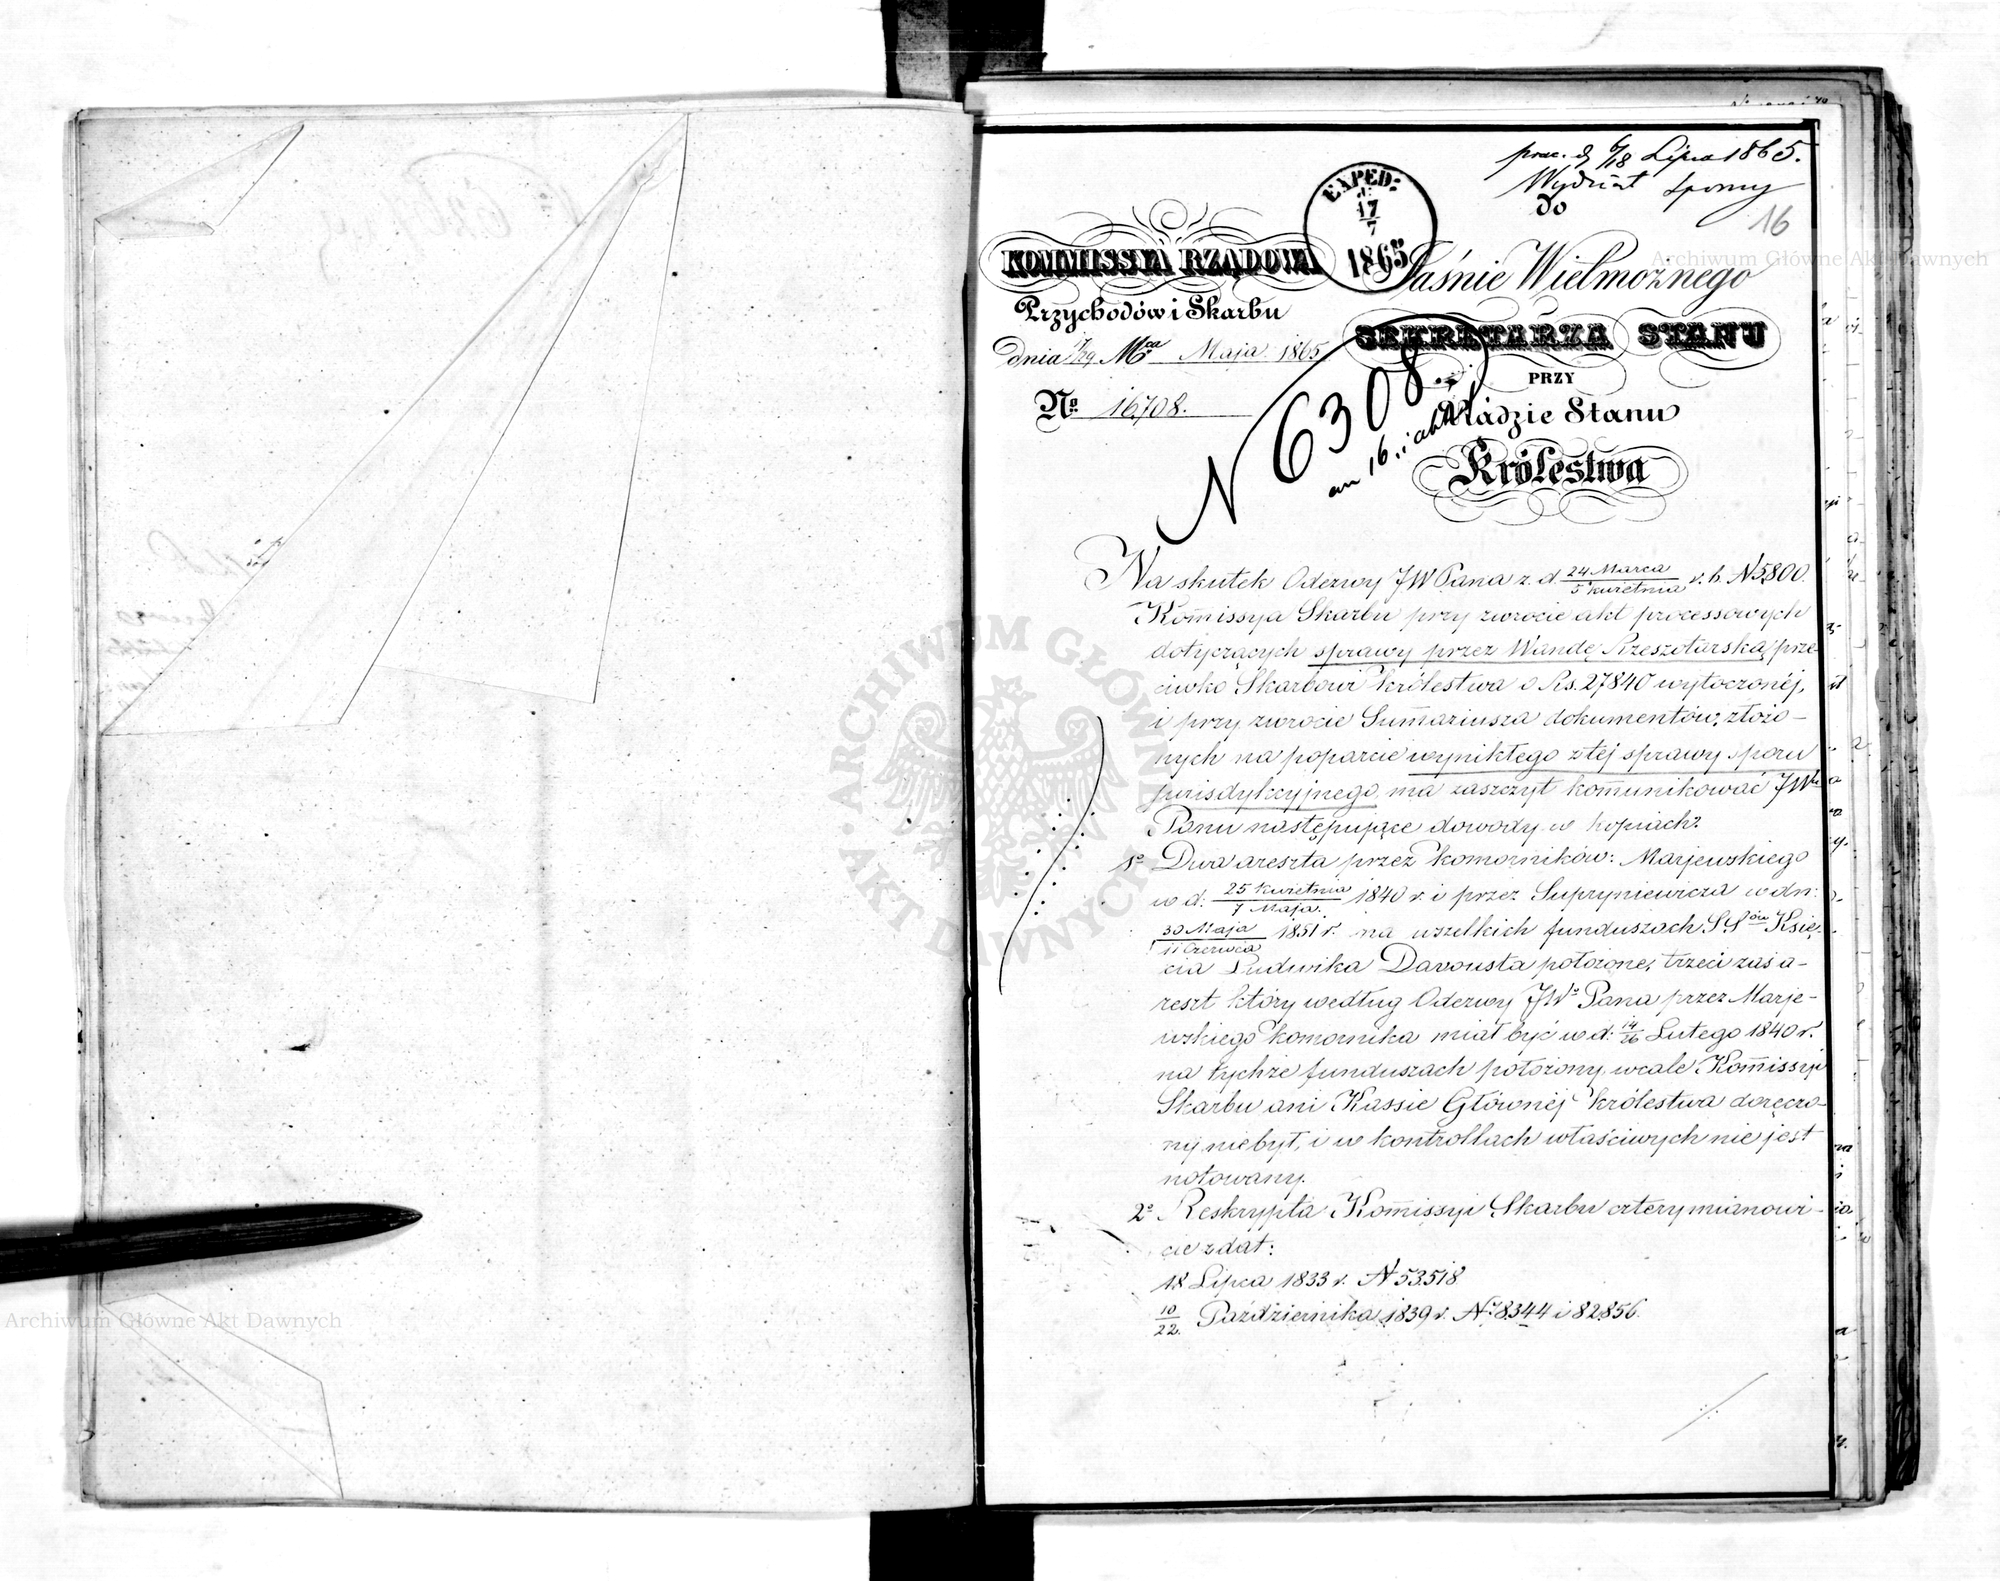 prac. d. 6/18 Lipca 1865.
Wydział Sporny
do
16
EXPED:
d:
17/7
1865
KOMMISSYA RZĄDOWA
Przychodów i Skarbu
dnia 17/29 Mca Maja 1865
No. 16708.
Jaśnie Wielmożnego
SEKRETARZA STANU
PRZY
Radzie Stanu
Królestwa
N 6308.
Na skutek Odezwy JW Pana z d. 24 Marca/5 Kwietnia r. b. N 5800.
Kommissya Skarbu przy zwrocie akt processowych
dotyczących sprawy przez Wandę Rzeszotarską prze
ciwko Skarbowi Królestwa o Rs. 27840 wytoczonéj,
i przy zwrocie Summariusza dokumentów, złożo-
nych na poparcie wynikłego z téj sprawy sporu
jurisdykcyjnego, ma zaszczyt kommunikować JWu
Panu następujące dowody w kopiach:
1o Dwa areszta przez Komorników: Marjewskiego
w d. 25 Kwietnia/7 Maja 1840 r. i przez Supryniewicza w dn:
30 Maja/11 Czerwca 1851 r. na wszelkich funduszach SSów Księ
cia Ludwika Davousta położone, trzeci zaś a-
reszt który według Odezwy JWo Pana przez Marje-
wskiego Komornika miał być w d. 14/26 Lutego 1840 r.
na tychże funduszach położony, wcale Kommissyi
Skarbu ani Kassie Głównéj Królestwa doręczo-
ny niebył, i w kontrollach właściwych nie jest
notowany.
2o Reskrypta Kommissyi Skarbu cztery mianowi-
cie z dat:
18 Lipca 1833 r. N 53518
10/22 Października 1839 r. Nr 8344 i 82856.
Archiwum Główne Akt Dawnych
Archiwum Główne Akt Dawnych
ARCHIWUM GŁÓWNE AKT DAWNYCH